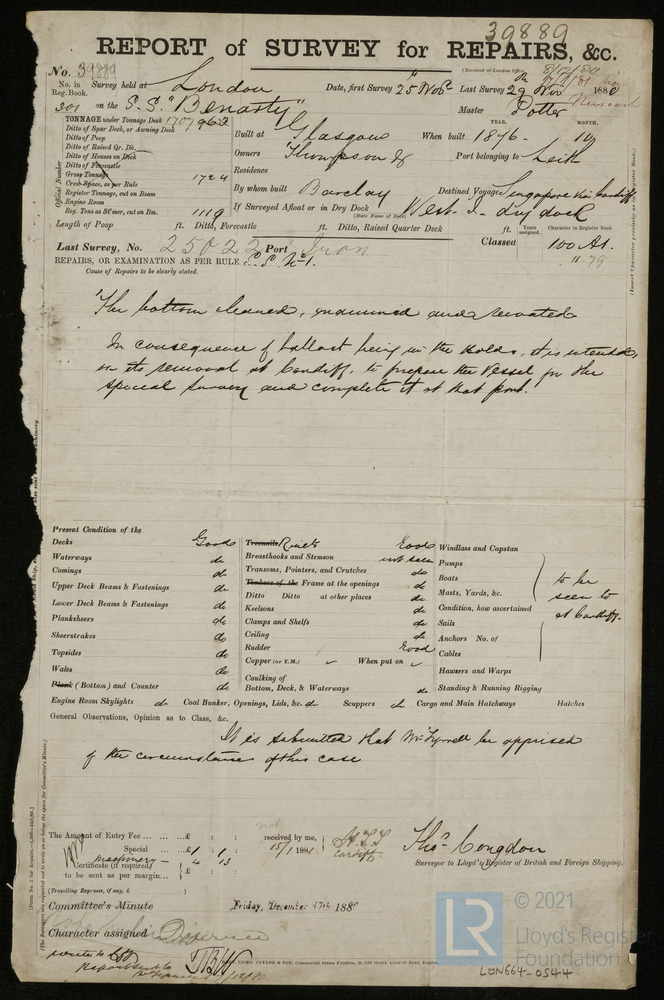 39889
REPORT of SURVEY for REPAIRS, &c.
(Received at London Office
No. 39889
No. in Reg. Book. Survey held at London Date, first Survey 25 Nov Last Survey 29 Nov 1880
301 on the S.S. "Benarty" Master Potter
TONNAGE under Tonnage Deck 1707 962
Ditto of Spar Deck, or Awning Deck
Ditto of Poop
Ditto of Raised Qr. Dk.
Ditto of Houses on Deck
Ditto of Forecastle
Gross Tonnage 1724
Crew Space, as per Rule
Register Tonnage, cut on Beam
Engine Room
Reg. Tons as St'mer, cut on Bm. 1119
Official Number
YEAR. MONTH.
Built at Glasgow When built 1876 . 10
Owners Thompson & Port belonging to Leith
Residence
By whom built Barclay Destined Voyage Singapore via Cardiff
If Surveyed Afloat or in Dry Dock West I. dry dock
(State Name of Dock)
Length of Poop ft. Ditto, Forecastle ft. Ditto, Raised Quarter Deck ft. Years assigned. Character in Register Book.
Last Survey, No. 25022 Port Iron Classed 100 A1.
11.79
REPAIRS, OR EXAMINATION AS PER RULE S.S. No 1.
Cause of Repairs to be clearly stated.
The bottom cleaned, examined and recoated
In consequence of ballast being in the holds, it is intended,
on its removal at Cardiff, to prepare the Vessel for the
Special Survey and complete it at that port.
Present Condition of the
Decks Good
Waterways do
Comings do
Upper Deck Beams & Fastenings do
Lower Deck Beams & Fastenings do
Planksheers do
Sheerstrakes do
Topsides do
Wales do
Plank (Bottom) and Counter do
Treenails Rivets Good
Breasthooks and Stemson not seen
Transoms, Pointers, and Crutches do
Timbers of the Frame at the openings do
Ditto Ditto at other places do
Keelsons do
Clamps and Shelfs do
Ceiling do
Rudder Good
Copper (or Y.M.) When put on
Caulking of
Bottom, Deck, & Waterways do
Windlass and Capstan
Pumps
Boats
Masts, Yards, &c.
Condition, how ascertained
Sails
Anchors No. of
Cables
Hawsers and Warps
Standing & Running Rigging
to be
seen to
at Cardiff.
Engine Room Skylights do Coal Bunker, Openings, Lids, &c. do Scuppers do Cargo and Main Hatchways Hatches
General Observations, Opinion as to Class, &c.
It is submitted that Mr Tyrrell be apprised
of the circumstances of this case
The Amount of Entry Fee ... ... ...£ : : received by me,
Special ... ...£ 1 : 1 : 15/1 1881
machinery 4 : 13
Certificate (if required)
to be sent as per margin...
(Travelling Expenses, if any, £ )
Cardiff
Thos. Congdon
Surveyor to Lloyd's Register of British and Foreign Shipping.
Committee's Minute Friday, December 17th 1880
Character assigned
wrote to
© 2021
LR
Lloyd's Register
Foundation
LON664-0544